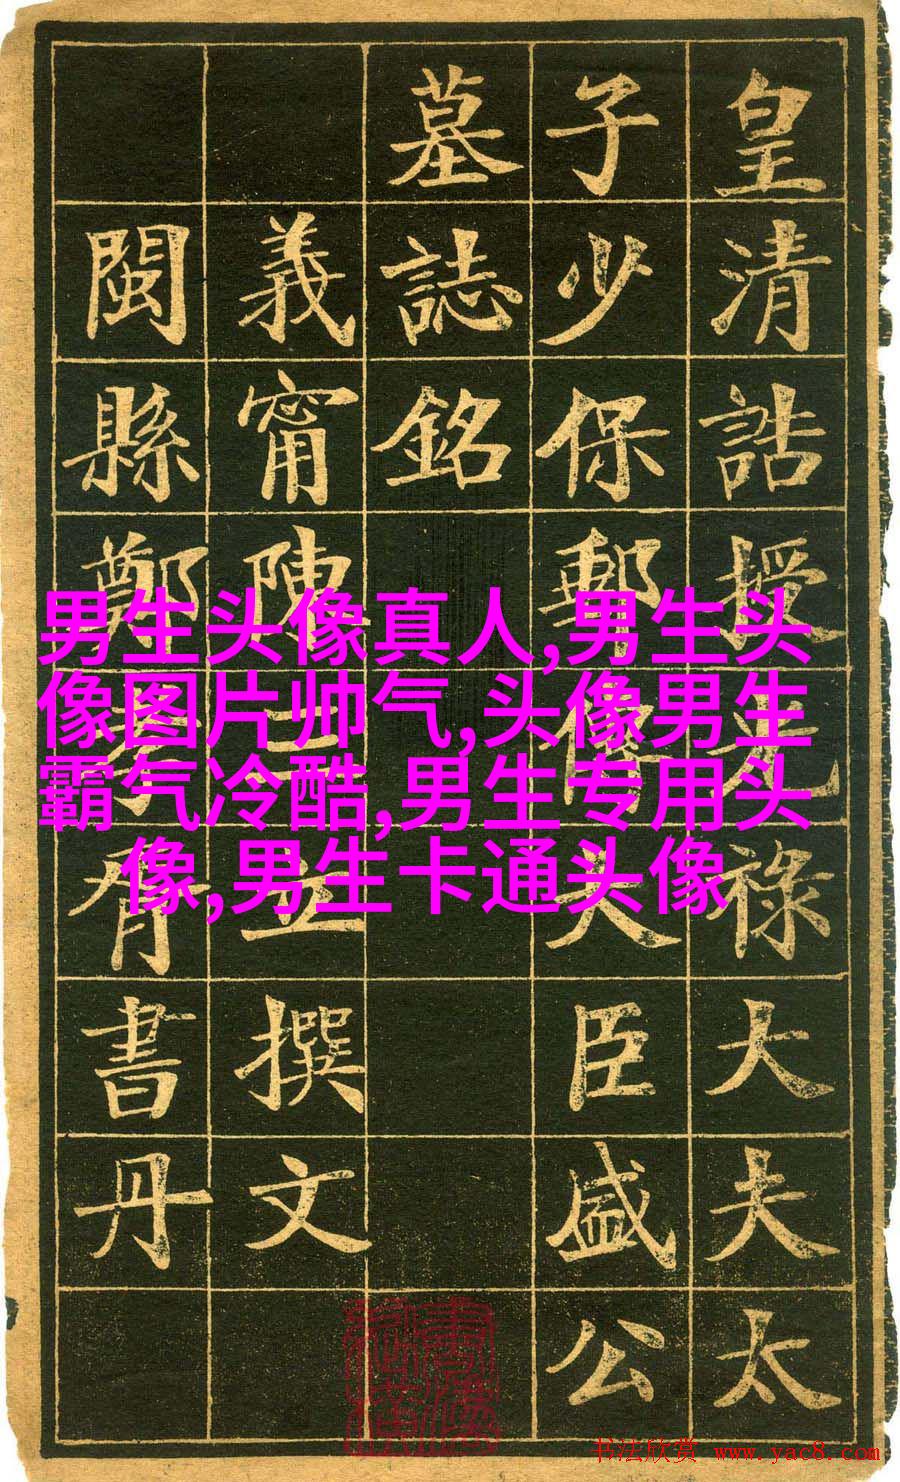 皇清誥授光祿大夫太
子少保郵傳大臣盛公
墓誌銘
義甯陳三立撰文
閩縣鄭孝胥書丹
男生头像真人,男生头
像图片帅气,头像男生
霸气冷酷,男生专用头
像,男生卡通头像
书法欣赏 www.yac8.com